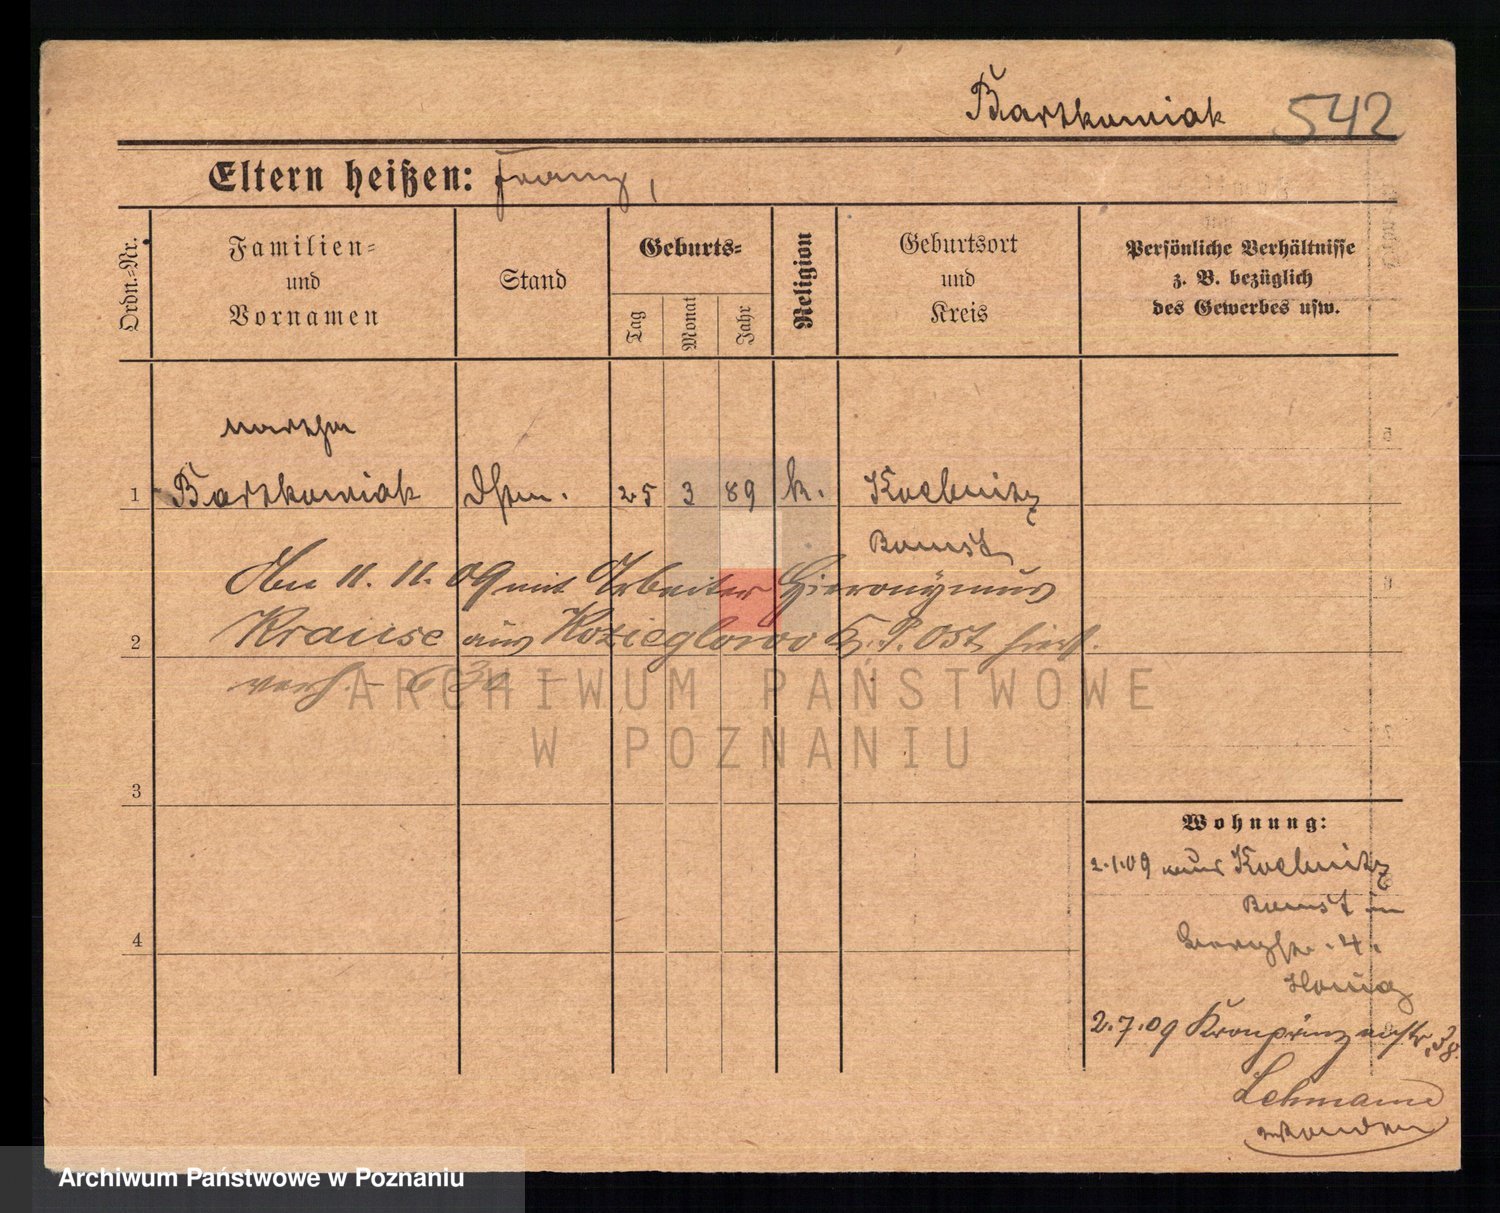 Bartkowiak 542
Eltern heißen: Franz,
Ordn.-Nr.
Familien-
und
Vornamen
Stand
Geburts-
Tag
Monat
Jahr
Religion
Geburtsort
und
Kreis
Persönliche Verhältnisse
z. B. bezüglich
des Gewerbes usw.
Martha
1 Bartkowiak Dstm. 25 3 89 k. Koebnitz
Bomst
Am 11. 11. 09 mit Arbeiter Hieronÿmus
2 Krause aus Kozieglowo K. P. Ost hier
verh. - 630 -
ARCHIWUM PAŃSTWOWE
W POZNANIU
3
Wohnung:
2.1.09 aus Koebnitz
Bomst in
4
Georgstr. 4.
Honig
2.7.09 Kronprinzenstr. 38.
Lehmann
Archiwum Państwowe w Poznaniu